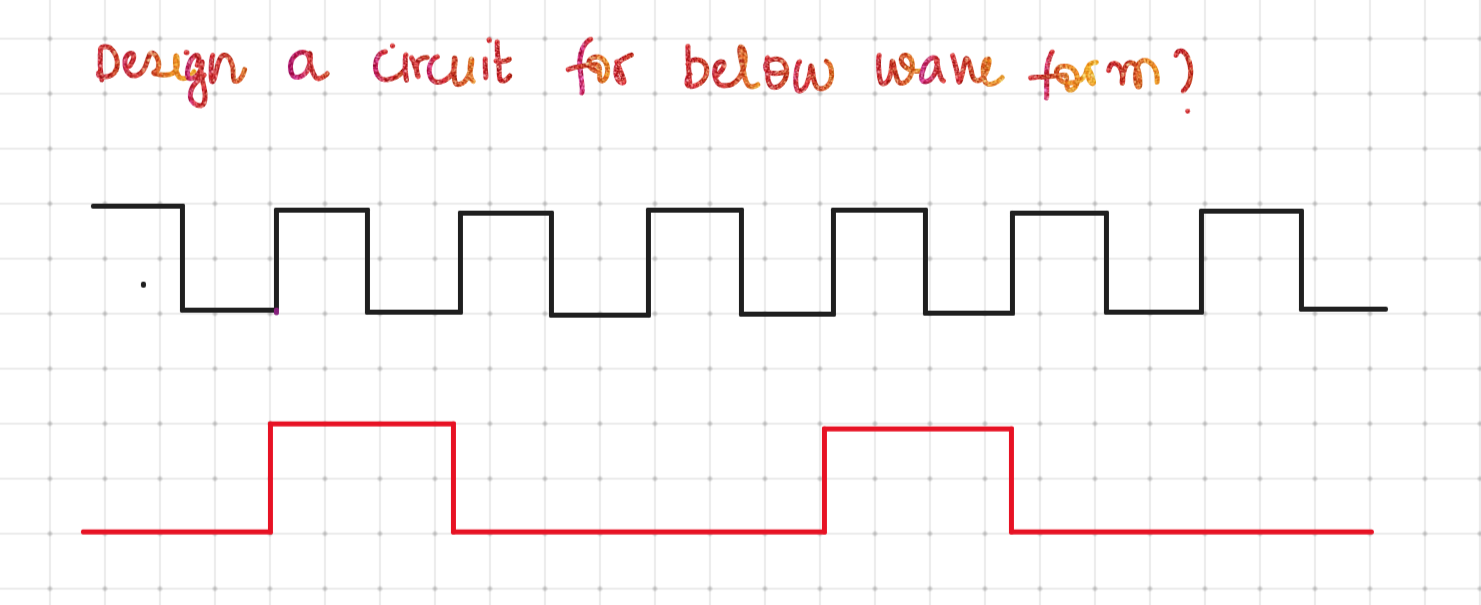 Design a circuit for below wave form?